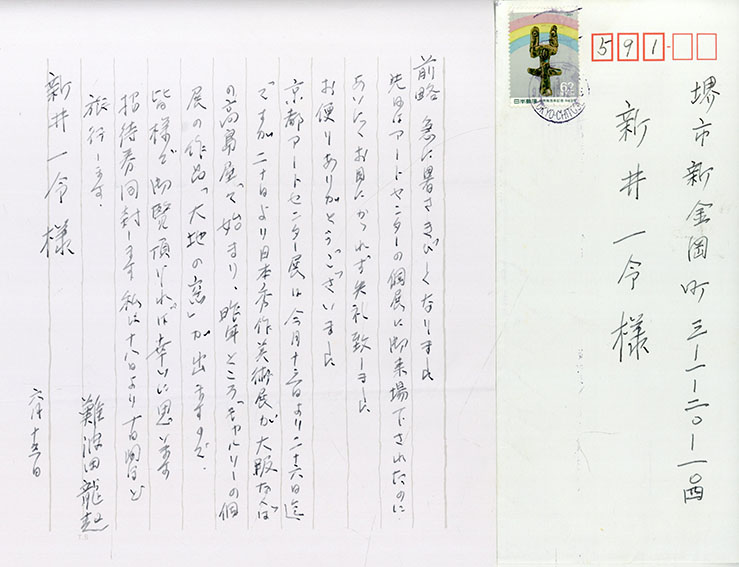 591
堺市新金岡町三ー一ー二〇ー一〇四
新井一令様
62
日本郵便
前略 急に暑さきびしくなりました
先日はアートセンターの個展に御来場下されたのに
あいにくお目にかゝれず失礼致しました
お便りありがとうございました
京都アートセンター展は今月十三日より二十六日迄
ですが二十日より日本秀作美術展が大阪なんば
の高島屋で始まり、昨年ところギャルリーの個
展の作品「大地の窓」が出ますので、
皆様で御覧頂ければ幸いに思います
招待券同封します 私は十八日より十日間ほど
旅行します.
難波田龍起
六月
新井一令様